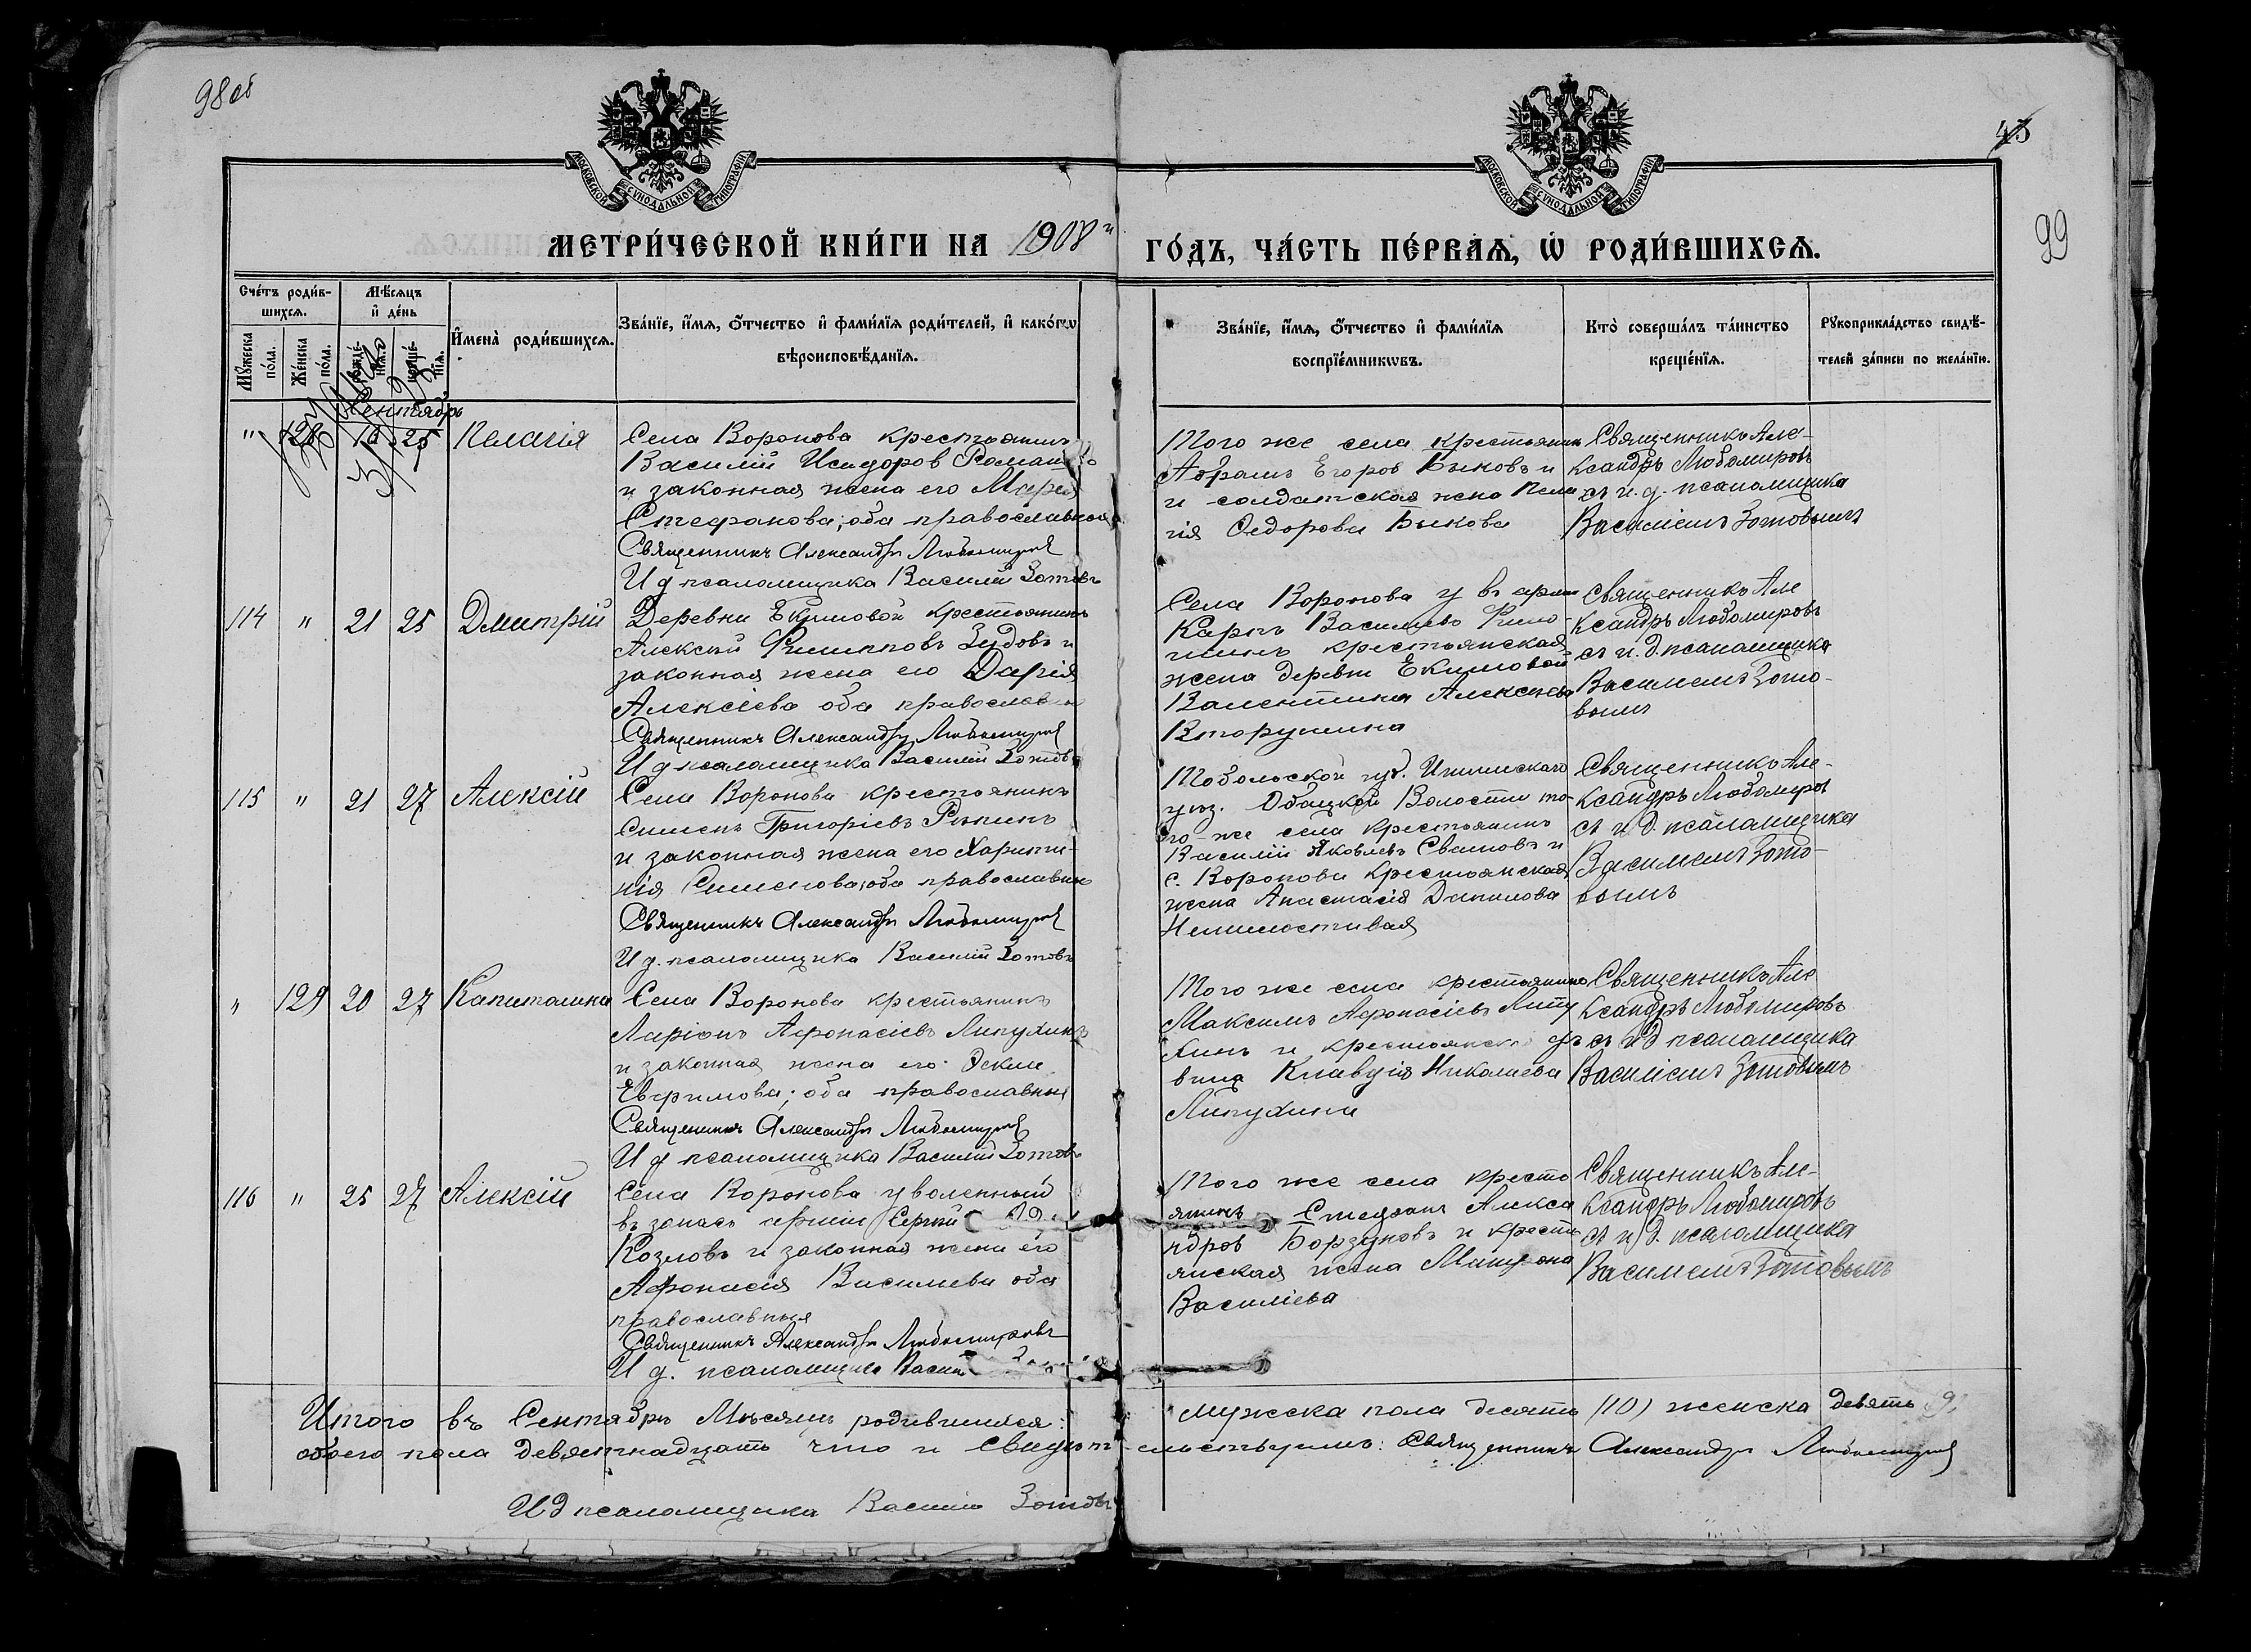 98 об
43
99
МОСКОВСКОЙ СѴНОДАЛЬНОЙ ТИПОГРАФІИ
МОСКОВСКОЙ СѴНОДАЛЬНОЙ ТИПОГРАФІИ
МЕТРИ́ЧЕСКОЙ КНИ́ГИ НА 1908й
ГО́ДЪ, ЧА́СТЬ ПЕ́РВАѦ, Ѡ҆ РОДИ́ВШИХСѦ.
Сче́тъ роди́в-
шихсѧ.
Мꙋ́жеска по́ла.
Же́нска по́ла.
Мѣ́сѧцъ
и҆ де́нь
рожде́-нїѧ.
креще́-нїѧ.
И҆мена̀ роди́вшихсѧ.
Зва́нїе, и҆́мѧ, ѻ҆́тчество и҆ фами́лїѧ роди́телей, и҆ како́гѡ
вѣроисповѣ́данїѧ.
Зва́нїе, и҆́мѧ, ѻ҆́тчество и҆ фами́лїѧ
воспрїе́мникѡвъ.
Кто̀ соверша́лъ та́инство
креще́нїѧ.
Рꙋкоприкла́дство свидѣ́-
телей за́писи по жела́нїю.
Сентябрь
" 128 19 25 Пелагія
Села Воронова крестьянинъ
Василій Исидоров Романов
и законная жена его Марія
Стефанова; оба православные
Священникъ Александръ Любомировъ
И д псаломщика Василій Зотовъ
Того же села крестьянин
Абрамъ Егоров Быковъ и
и солдатская жена Пела
гія Федорова Быкова
Священникъ Але-
ксандръ Любомировъ
съ и. д. псаломщика
Василіемъ Зотовымъ
114 " 21 25 Дмитрій
Деревни Екимовой крестьянинъ
Алексѣй Филипповъ Зудовъ и
законная жена его Дарія
Алексіева оба православные
Священникъ Александръ Любомировъ
И д псаломщика Василій Зотовъ
Села Воронова у въ арміи
Карпъ Василіевъ
крестьянская
жена деревни Екимовой
Валентина Алексѣева
Вторушина
Священникъ Але
ксандръ Любомировъ
съ и. д. псаломщика
Василіемъ Зото-
вымъ
115 " 21 27 Алексій
Села Воронова крестьянинъ
Симеонъ Григоріевъ Рѣпинъ
и законная жена его Харити-
нія Симеонова; оба православные
Священникъ Александръ Любомировъ
И д. псаломщика Василій Зотовъ
Тобольской губ. Ишимскаго
уѣз. Абацкой Волости то-
го же села крестьянинъ
Василій Яковлевъ Сватовъ и
с. Воронова крестьянская
жена Анастасія Данилова
Немилостивая
Священникъ Але-
ксандръ Любомировъ
съ и. д. псаломщика
Василіемъ Зото-
вымъ
" 129 20 27 Капитолина
Села Воронова крестьянинъ
Ларіонъ Афонасіевъ Липухинъ
и законная жена его Фекла
Евфимова; оба православные
Священникъ Александръ Любомировъ
И д псаломщика Василій Зотовъ
Того же села крестьянинъ
Максимъ Афонасіевъ Липу
хинъ и крестьянска дѣ
вица Клавдія Николаева
Липухина
Священникъ Але
ксандръ Любомировъ
съ и д псаломщика
Василіемъ Зотовымъ
116 " 25 27 Алексій
Села Воронова уволенный
въ запасъ арміи Сергѣй
Козловъ и законная жена его
Афонасія Василіева оба
православныя
Священникъ Александръ Любомировъ
И д. псаломщика Василій
Того же села кресть
янинъ Стефанъ Алекса
ндров Борзуновъ и кресть
янская жена
Василіева
Священникъ Але-
ксандръ Любомировъ
съ и д. псаломщика
Василіемъ Зотовымъ
Итого въ Сентябрѣ Мѣсяцѣ родившихся: мужеска пола десять (10) женска девять 9.
обоего пола девятнадцать что и свидѣтельствуемъ: Священникъ Александръ Любомировъ
И д псаломщика Василій Зотовъ